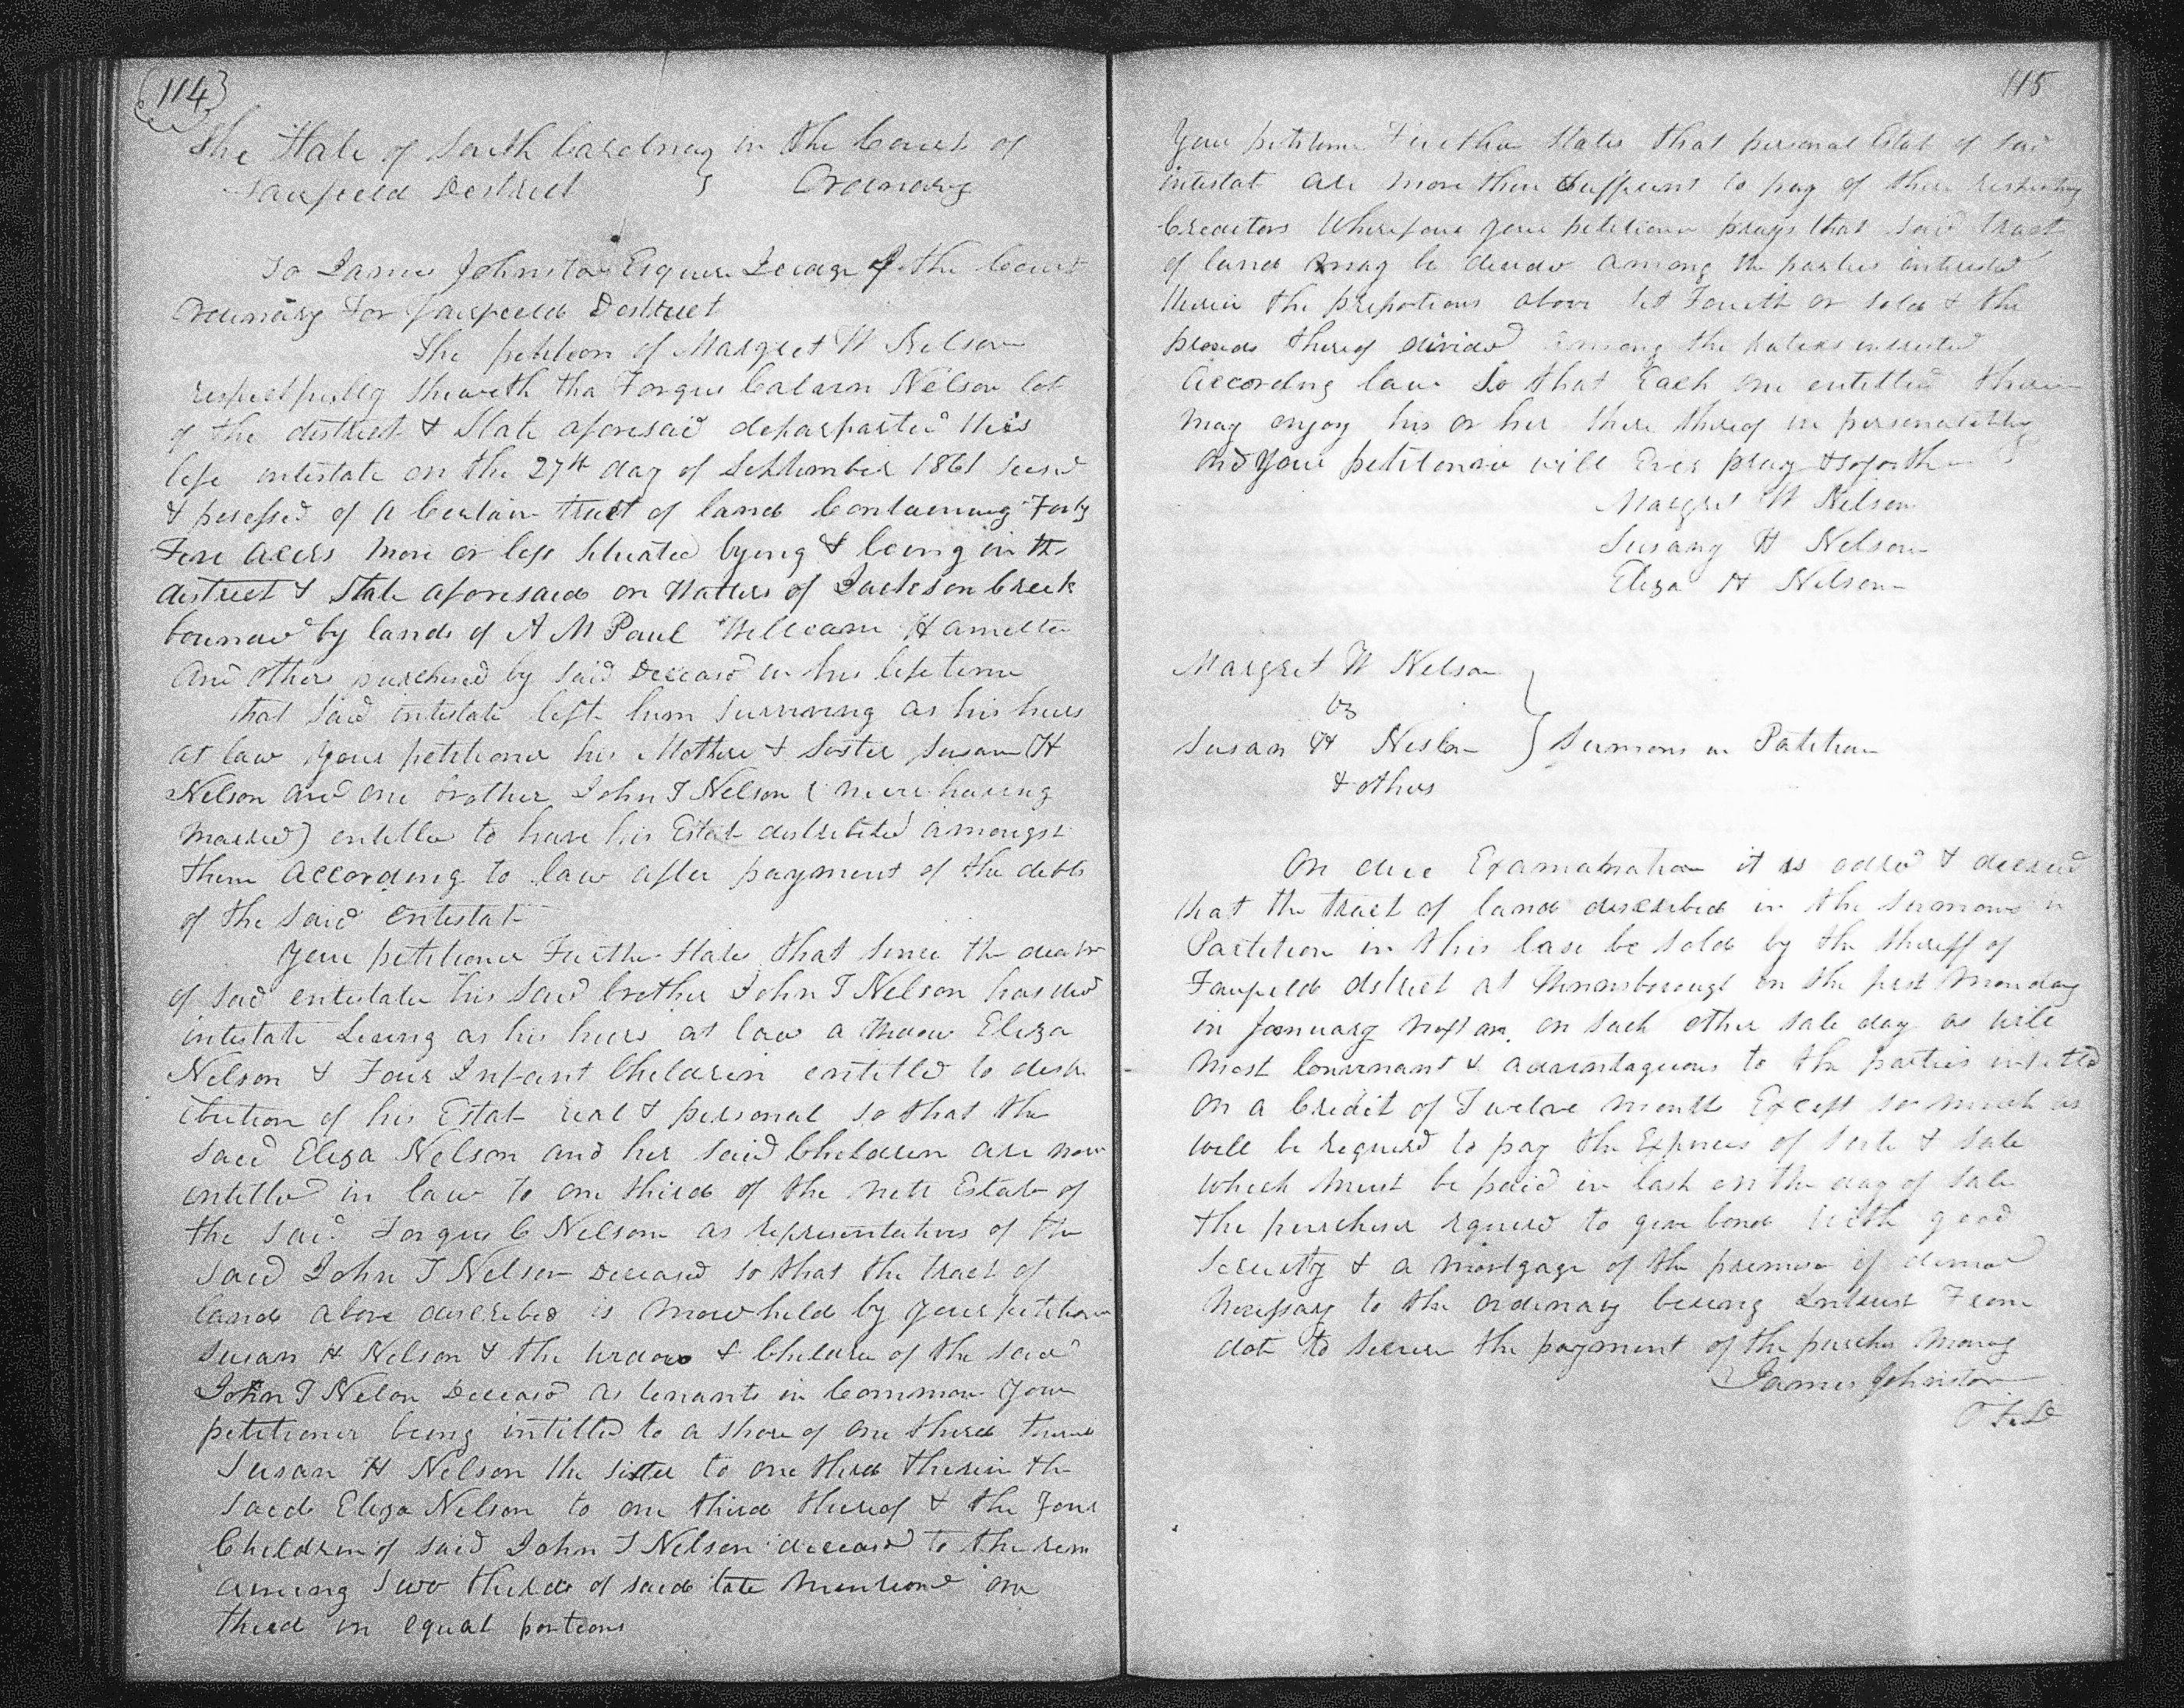 114
The State of South Carolina } In the Court of
Faifield District } Ordinary
To James Johnston Esquire Judge of the Court
Ordinary For Faifield District
The petition of Margret W Nelson
respectfully sheweth tha Forgus Calvin Nelson lat
of the district & State aforesaid deparparted this
life intestate on the 27th day of September 1861 seized
& posessed of A Certain tract of land Containing Forty
Five acers more or less situated lying & being in the
district & State aforesaid on Watters of Jackson Creek
bounded by lands of A M Paul William Hamilton
And others purchesed by said Deceased in his life time
that said intestate left him surviving as his heirs
at law your petitioner his Mother & Sister Susan H
Nelson and one brother John T Nelson having
married) entitled to have his Estat distributed amongst
them According to law after payment of the debts
of the said entestat
Your petitioner Further States that since the death
of said entestate his said brother John T Nelson has died
intestate Leving as his heirs at law a widow Eliza
Nelson & Four Infant Children entitled to distr
ibution of his Estat real & personal so that the
said Eliza Nelson and her said Children are now
entitled in law to one third of the nett Estate of
the said Forgus C Nelson as representatives of the
said John T Nelson Deceased so that the tract of
land above described is now held by your petitioner
Susan H Nelson & the widow & Children of the said
John T Nelson Deceased as tenants in Common Your
petitioner being intitled to a share of one third
Susan H Nelson the sister to one third therein the
said Eliza Nelson to one third thereof & the Four
Children of said John T Nelson deceased to the rem
aining two thirds of said late mentioned one
third in equal portions
115
Your petitioner Further States that personal Estat of said
intestat are more then Suffecient to pay of there respecting
Creaditors Wherefore your petitioner prays that said tract
of land may be devided among the parties intrested
therein the prepotions above set Fourth or sold & the
proseds thereof divided among the parties intrested
according law So that Each one entitled therein
may enjoy his or her there thereof in
And Your petitioner will Ever pray & soforth
Margret W Nelson
Susany H Nelson
Eliza H Nelson
Margret W Nelson
vs
Susan H Neslon } Sumons in Patition
& others
On due Examanation it is odred & decreed
that the tract of land described in the sumons in
Partition in this Case be sold by the Sheriff of
Faifield dstrict at Winnsborough on the first Monday
in January next or on such other sale day as will
most Convenant & advantageous to the parties intitled
on a Credit of Twelve month Except so much as
will be required to pay the Expences of & sale
which must be paid in Cash on the day of sale
the purcheser rquired to give bond with good
security & a mortgage of the premises if demed
necessary to the ordinary bering Intrust From
dat to secure the payment of the purches money
James Johnston
O F D